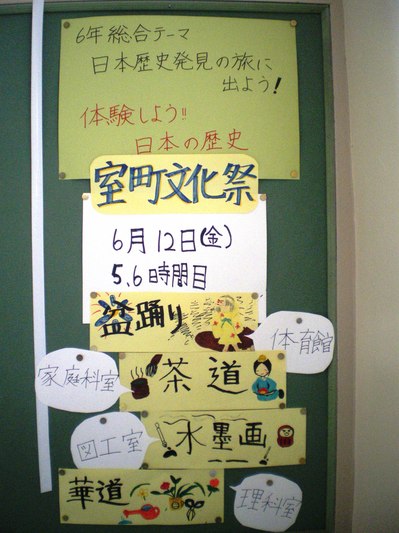 6年総合テーマ
日本歴史発見の旅に
出よう!
体験しよう!!
日本の歴史
室町文化祭
6月12日(金)
5,6時間目
盆踊り
体育館
家庭科室
茶道
図工室
水墨画
華道
理科室